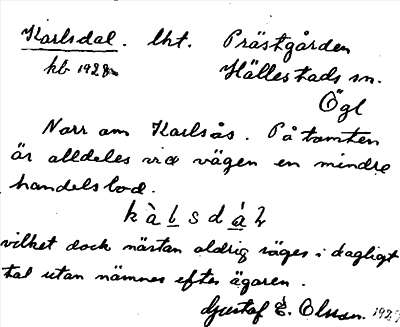 Karlsdal. lht. Prästgården
kb 1928 Hällestads sn.
Ögl
Norr om Karlsås. På tomten
är alldeles vid vägen en mindre
handelsbod.
k à ḻ s d á̱ ɫ
vilket dock nästan aldrig säges i dagligt
tal utan nämnes efter ägaren.
Gustaf E. Olsson.